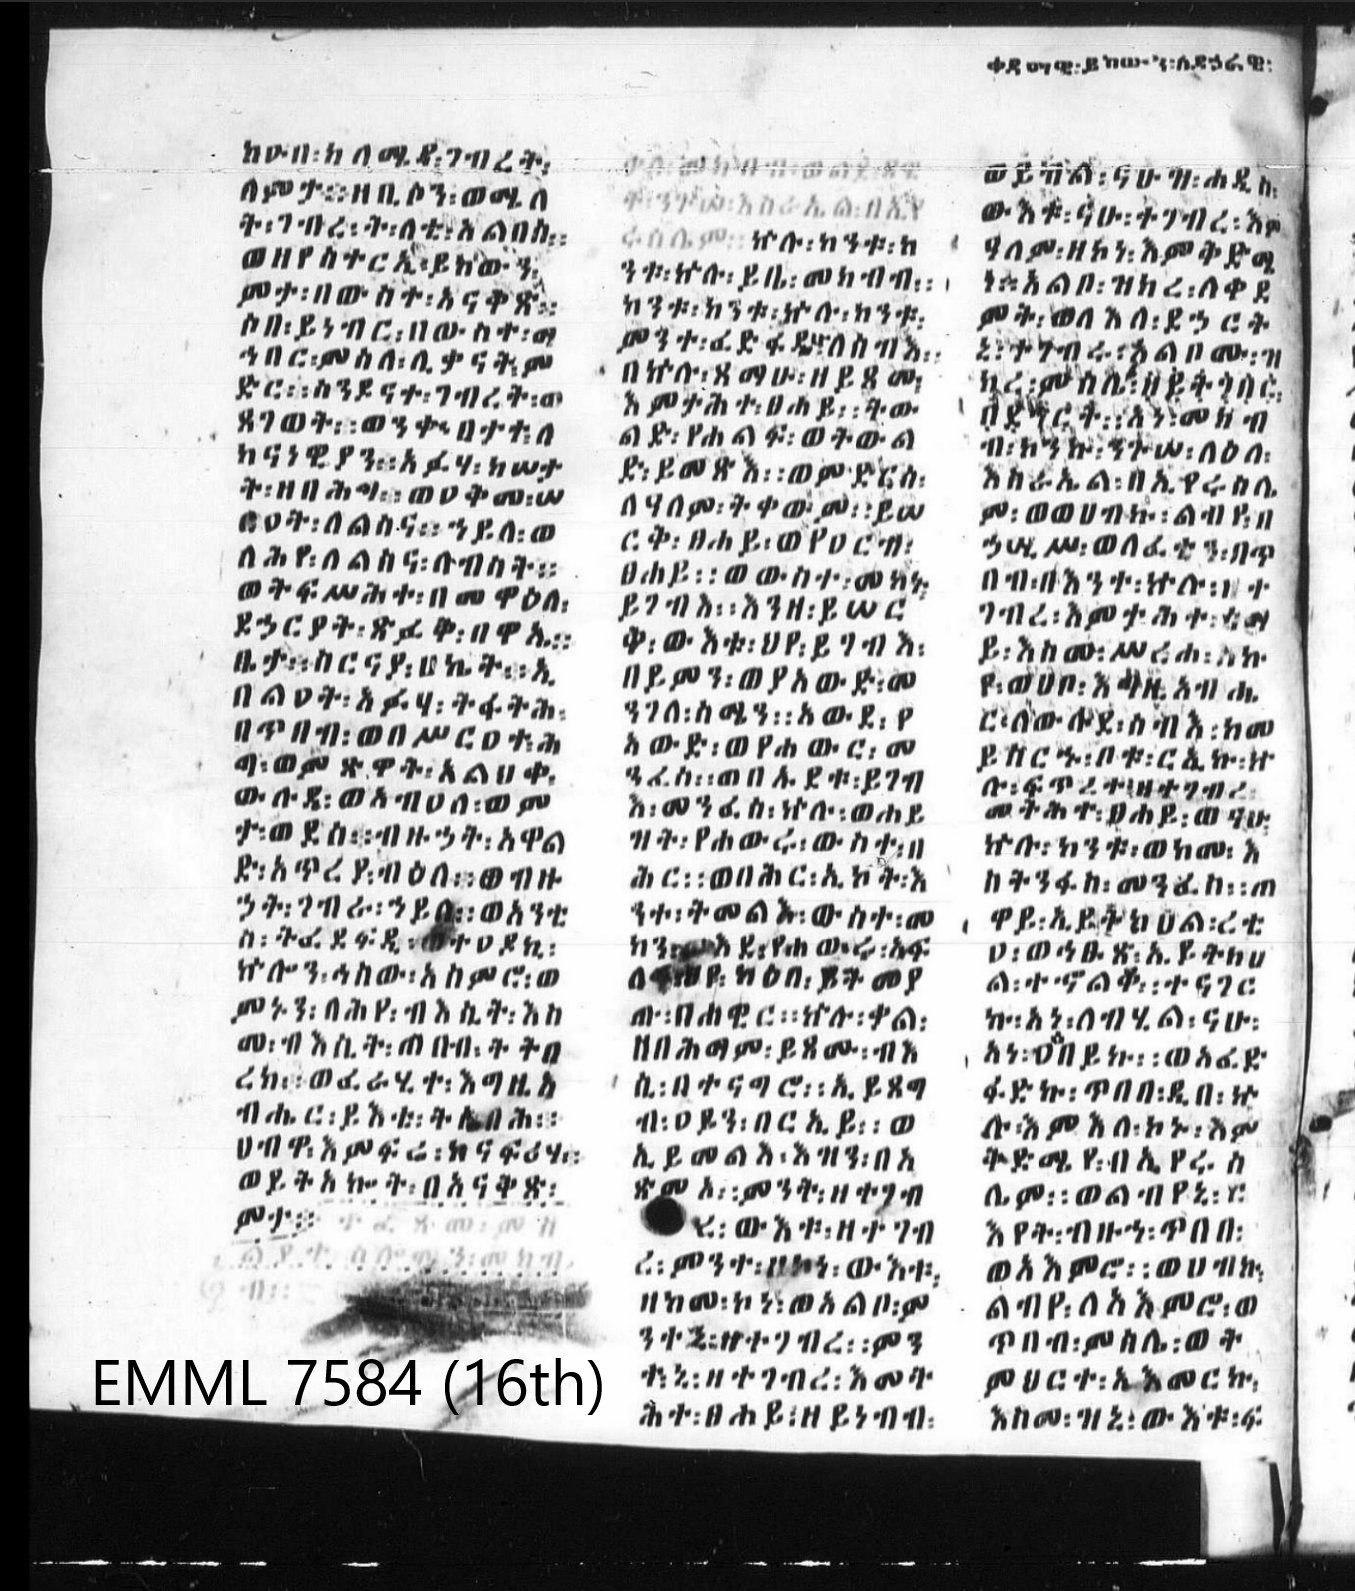 ቀዳማዊ፡ይከውን፡ለደኃራዊ፡
ከዑበ፡ክ ለሜዳ፡ገብረት፡
ለምታ።ዘቢሶን፡ወሜለ
ት፡ገብረ፡ት፡ለቲ፡አልበስ።
ወዘየስተርኢ፡ይከውን፡
ምታ፡በውስተ፡አናቅጽ።
ሶበ፡ይነብር፡በውስተ፡ማ
ኅበር፡ምስለ፡ሊቃናት፡ም
ድር።ስንዶናተ፡ገብረት፡ወ
ጸገወት።ወንቀ፡በታተ፡ለ
ከናነዊያን።አፉሃ፡ከሠታ
ት፡ዘበሕግ።ወዐቅመ፡ሠ
ርዐት፡ለልሳና።ኀይለ፡ወ
ለሕየ፡ለልሳና፡ሉብሰት።
ወትፍሥሕተ፡በመዋዕለ፡
ደኃርያት፡ጽፉቅ፡በዋኤ።
ቤታ።ስርናየ፡ሀኬት።ኢ
በልዐት፡አፉሃ፡ትፋትሕ፡
በጥበብ፡ወበሥርዐተ፡ሕ
ግ፡ወምጽዋት፡አልህቀ፡
ውሉዳ፡ወአብዐለ፡ወም
ታ፡ወደሰ።ብዙኃት፡አዋል
ድ፡አጥረያ፡ብዕለ።ወብዙ
ኃት፡ገብራ፡ኀይለ።ወአንቲ
ሰ፡ትፈደፍዲ፡ወተዐደኪ፡
ኵሎን፡ሐሰው፡አስምሮ፡ወ
ምኑን፡ለሕየ፡ብእሲት፡እስ
መ፡ብእሲት፡ጠበብ፡ትትበ
ረክ።ወፈራሂተ፡እግዚአ
ብሔር፡ይእቲ፡ትሴብሕ።
ሀብዋ፡እምፍሬ፡ከናፍሪሃ።
ወይትአኰት፡በአናቅጽ፡
ምታ።
ኵሉ፡ከንቱ፡ከ
ንቱ፡ኵሉ፡ይቤ፡መክብብ።
ከንቱ፡ከንቱ፡ኵሉ፡ከንቱ።
ምንተ፡ፈድፋዱ፡ለሰብእ።
በኵሉ፡ጻማሁ፡ዘይጻሙ፡
እምታሕተ፡ፀሐይ።ትው
ልድ፡የሐልፍ፡ወትውል
ድ፡ይመጽእ።ወምድርሰ፡
ለዓለም፡ትቀውም።ይሠ
ርቅ፡ፀሐይ፡ወየዐርብ፡
ፀሐይ።ወውስተ፡መካኑ፡
ይገብእ።እንዘ፡ይሠር
ቅ፡ውእቱ፡ህየ፡ይገብእ፡
በይምን፡ወያአውድ፡መ
ንገለ፡ሰሜን።አውደ፡የ
አውድ፡ወየሐውር፡መ
ንፈስ።ወበኡደቱ፡ይገብ
እ፡መንፈስ፡ኵሉ፡ወሐይ
ዝት፡የሐውሩ፡ውስተ፡በ
ሕር።ወበሕር፡ኢኮት፡እ
ንተ፡ትመልእ፡ውስተ፡መ
ካን፡ እደ፡የሐውሩ፡አፍ
ህየ፡ ክዕበ፡ይትመየ
ጡ፡በሐዊር።ኵሉ፡ቃል፡
ዘበሕማም፡ይጸሙ፡ብእ
ሲ፡በተናግሮ።ኢይጸግ
ብ፡ዐይን፡በርኢይ።ወ
ኢይመልእ፡እዝን፡በአ
ጽምአ።ምንት፡ዘተገብ
ረ፡ውእቱ፡ዘተገብ
ረ፡ምንተ፡ዘኮነ፡ውእቱ፡
ዘከመ፡ኮነ፡ወአልቦ፡ም
ንተኒ፡ዘተገብረ።ምን
ተ፡ኒ፡ዘተገብረ፡እመት
ሕተ፡ፀሐይ፡ዘይነብብ፡
ወይብል፡ናሁ፡ዝ፡ሐዲስ፡
ውእቱ፡ናሁ፡ተገብረ፡እም
ዓለም፡ዘኮነ፡እምቅድሜ
ነ።አልቦ፡ዝክረ፡ለቀደ
ምት፡ወለእለ፡ደኃርት
ኒ፡ተገብሩ፡አልቦሙ፡ዝ
ክረ፡ምስለ፡ዘይትጎበር፡
በደኃርት።አነ፡መክብ
ብ፡ከንኩ፡ንጉሠ፡ለዕለ፡
እስራኤል፡በኢየሩሳሌ
ም፡ወወሀብኩ፡ልብየ፡በ
ኃሢሥ፡ወለፈቲን፡በጥ
በብ፡በእንተ፡ኵሉ፡ ተ
ገብረ፡እምታሕተ፡ሰማ
ይ፡እስመ፡ሥራሐ፡እኩ
የ፡ወሀቦ፡እግዚአብሔ
ር፡ለውሉደ፡ሰብእ፡ከመ
ይስርኁ፡ቦቱ፡ርኢኩ፡ኵ
ሉ፡ፍጥረተ፡ዘተገብረ፡
መትሕተ፡ፀሐይ፡ወናሁ፡
ኵሉ፡ከንቱ፡ወከመ፡እ
ስትንፋስ፡መንፈስ።ጠ
ዋይ፡ኢይትከሀል፡ረቲ
ዐ፡ወኅፁጽ፡ኢይትከሀ
ል፡ተኆልቆ።ተናገር
ኩ፡አነ፡ለብሂል፡ናሁ፡
አነ፡ዐበይኩ።ወአፈድ
ፋድኩ፡ጥበበ፡ዲበ፡ኵ
ሉ፡እምእለ፡ኮኑ፡እም
ቅድሜየ፡ብኢየሩሳ
ሌም።ወልብየኒ፡ር
እየት፡ብዙኀ፡ጥበበ፡
ወአእምሮ።ወሀብኩ፡
ልብየ፡ለአእምሮ፡ወ
ጥበብ፡ምስሌ፡ወት
ምህርተ፡አእመርኩ፡
እስመ፡ዝኒ፡ውእቱ፡ፍ
EMML 7584 (16th)